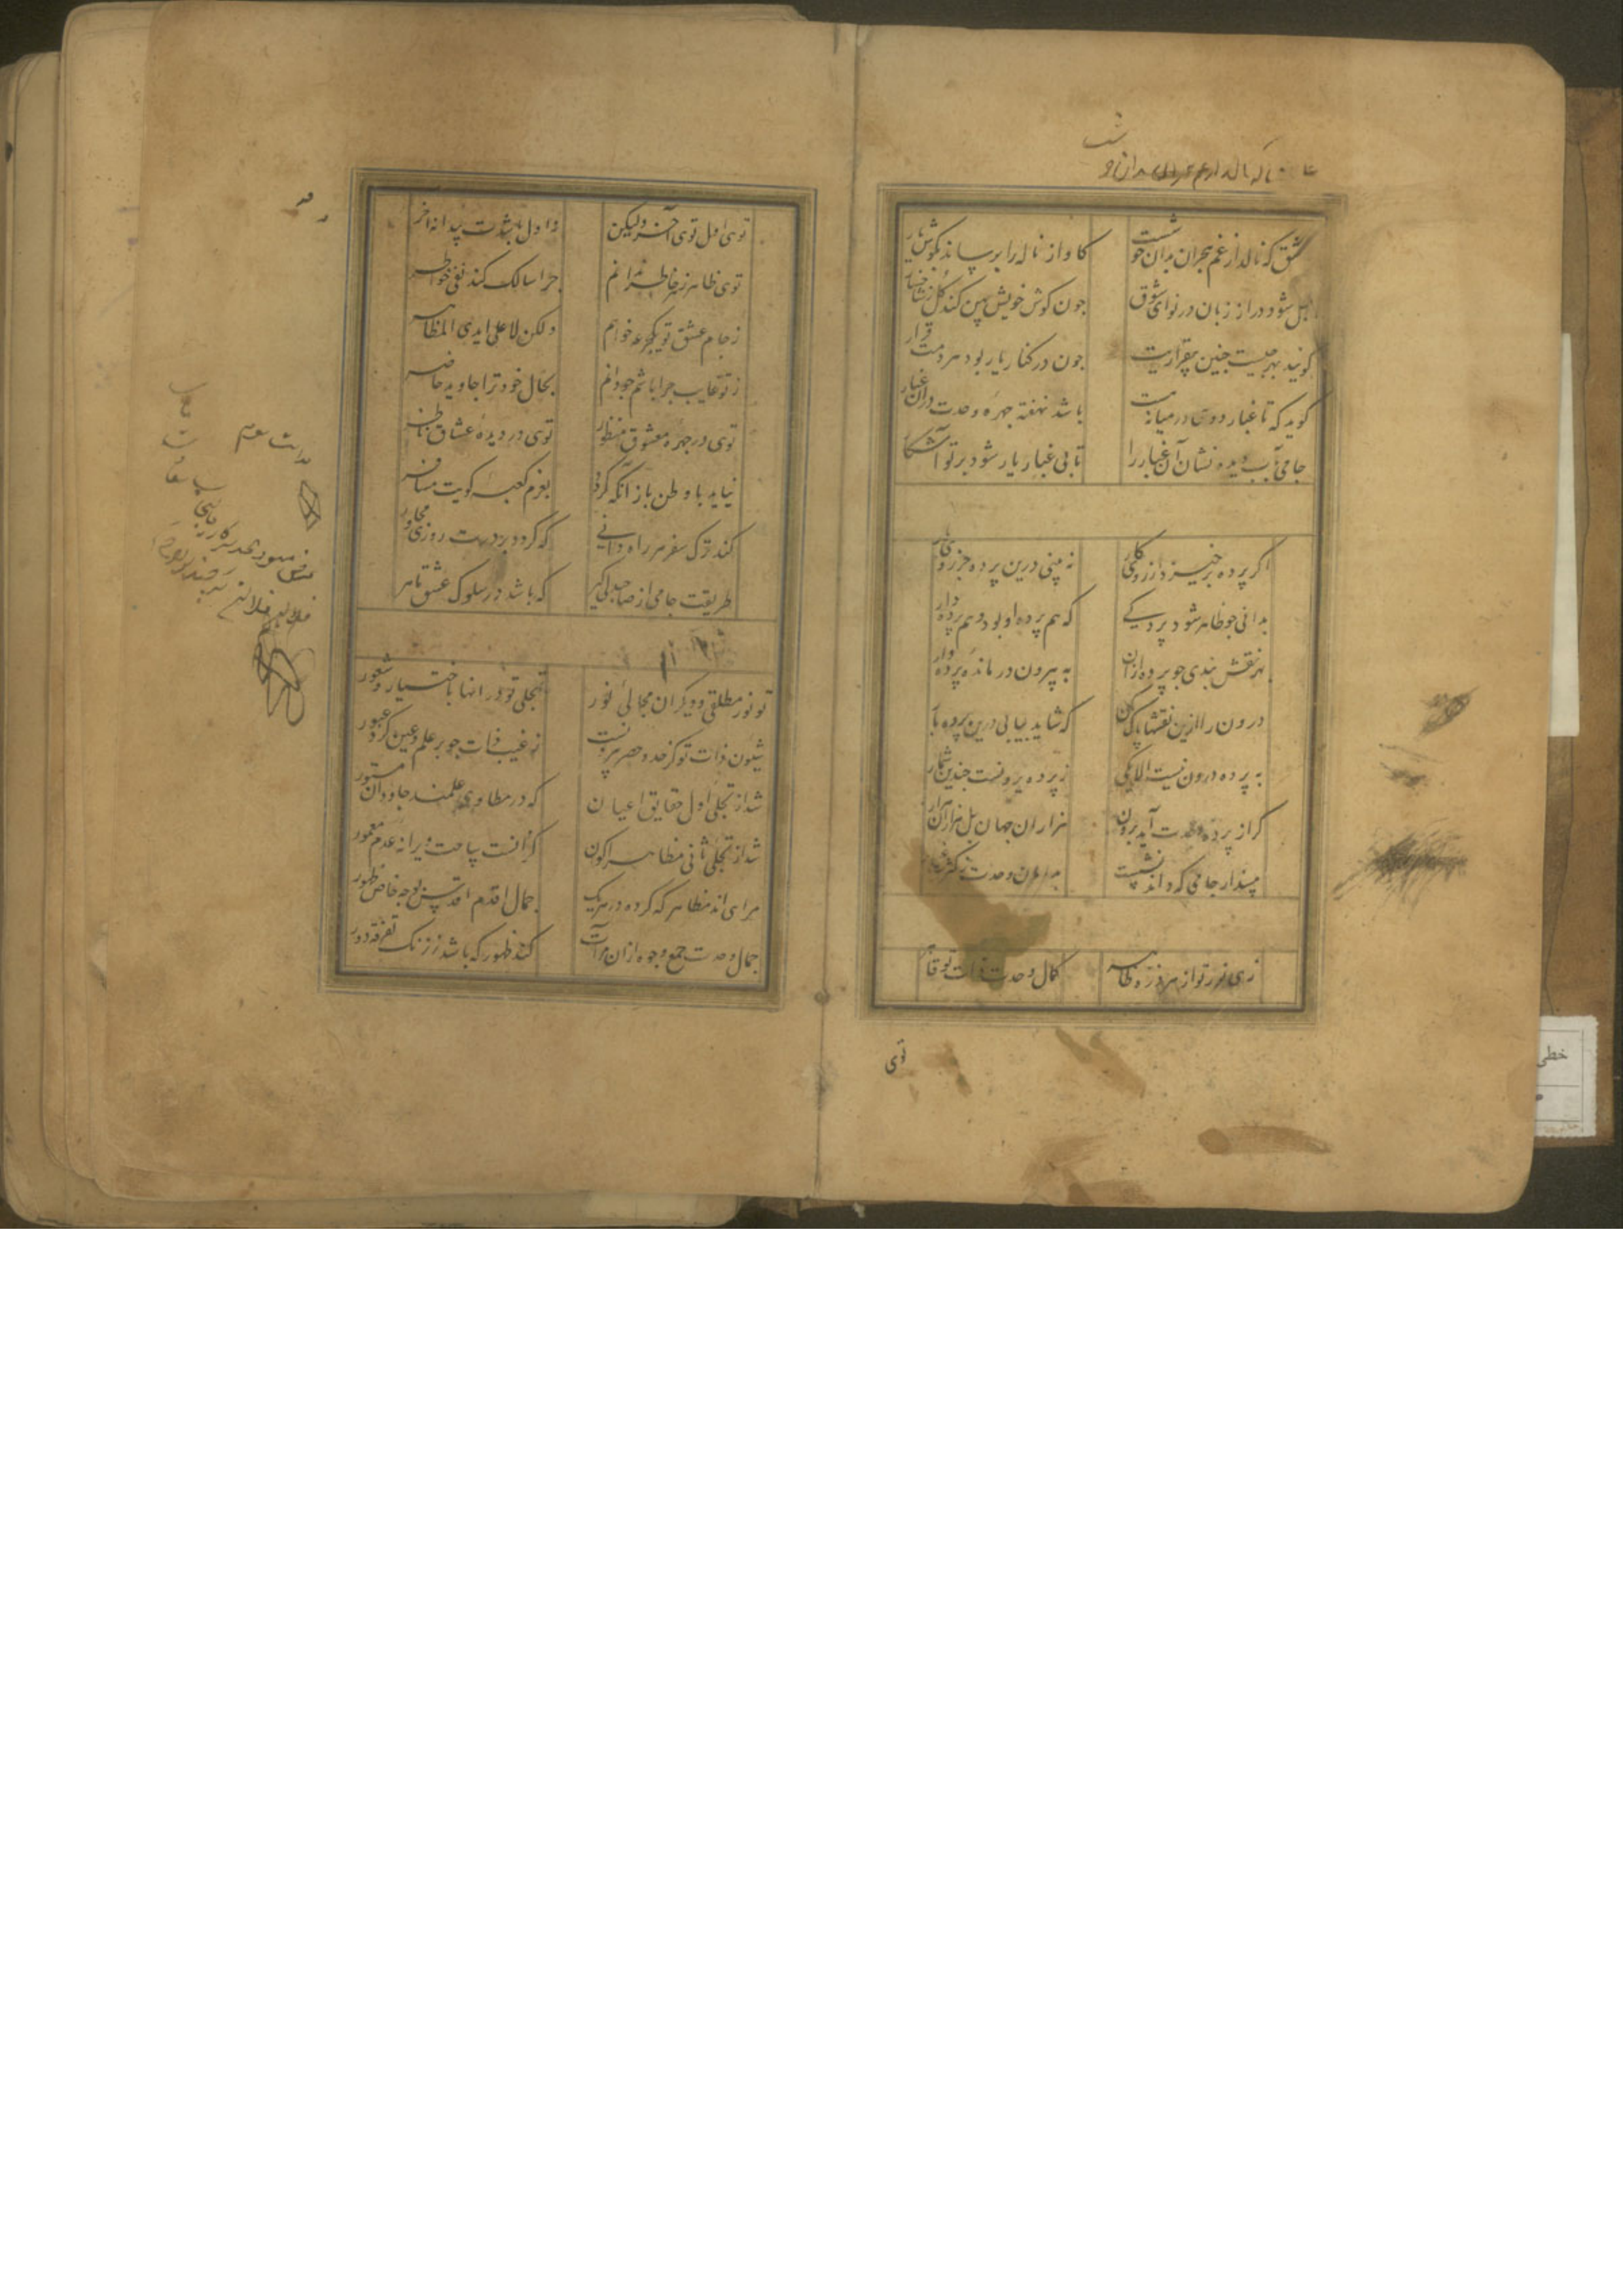 عشق که نالد از غم هجران بدان خوشست
کاواز ناله را برساند بکوش یار
شود دراز زبان در نوای شوق
جون کوش خویش پهن کند کل ز شاخسار
کویند بهر جیست جنین بیقراریت
جون در کنار یار بود هر دمت قرار
کوید که تا غبار دوی در میانه است
باشد نهفته جهره وحدت دران غبار
جامی بآب دیده نشان آن غبار را
تا بی غبار یار شود بر تو آشکار
اکر پرده برخیزد از روی کار
نه بینی درین پرده جز روی یار
بدانی جو ظاهر شود پردکی
که هم پرده او بود و هم پرده دار
بهر نقش بندی جو پرده ازان
به بیرون در مانده پرده وار
درون را ازین نقشها پاک کن
که شاید بیابی درین پرده بار
به پرده درون نیست الا یکی
ز پرده برونست جندین شمار
کر از پرده وحدت آید برون
هزاران جهان بل هزاران هزار
مپندار جامی که داند نشست
بدامان وحدت ز کثرت غبار
زهی نور تو از هر ذره ظاهر
کمال وحدت ذات تو قاهر
توی
توی اول توی آخر ولیکن
نه اول باشدت پیدا نه آخر
توی ظاهر ز هر خاطر ندانم
جرا سالک کند نفی خواطر
ز جام عشق تو یکجرعه خواهم
ولکن لا علی ایدی المظاهر
ز تو غایب جرا باشم جو دانم
بحال خود ترا جاوید حاضر
توی در جهره معشوق منظور
توی در دیده عشاق ناظر
نیاید با وطن باز آنکه کردد
بعزم کعبه کویت مسافر
کند ترک سفر هر راه دانی
که کردد بر درت روزی مجاور
طریقت جامی از صاحبدلی کیر
که باشد در سلوک عشق ماهر
تو نور مطلقی و دیکران مجالی نور
تجلی تو در انها باختیار و شعور
شیون ذات تو کز حد و حصر بیرونست
ز غیب ذات جو بر علم و عین کرد عبور
شد از تجلی اول حقایق اعیان
که در مطاوی علمند جاودان مستور
شد از تجلی ثانی مظاهر اکوان
کزانست ساحت ویرانه عدم معمور
مرای اند مظاهر که کرده در هر یک
جمال اقدم اقدس بوجه خاص ظهور
جمال وحدت جمع وجوه ازان مرآت
کند ظهور که باشد ز زنک تفرقه دور
خطی